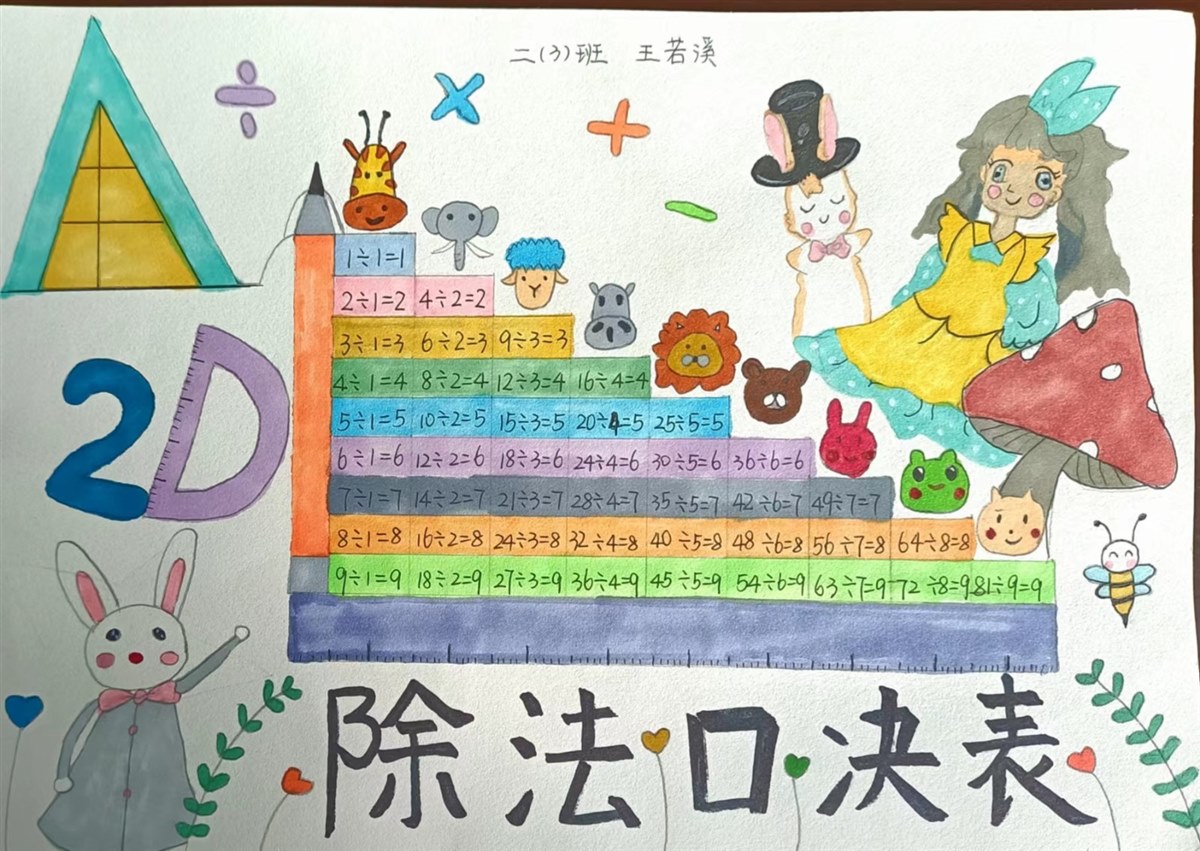 二(3)班 王若溪
÷ × + -
1÷1=1
2÷1=2 4÷2=2
3÷1=3 6÷2=3 9÷3=3
4÷1=4 8÷2=4 12÷3=4 16÷4=4
5÷1=5 10÷2=5 15÷3=5 20÷4=5 25÷5=5
6÷1=6 12÷2=6 18÷3=6 24÷4=6 30÷5=6 36÷6=6
7÷1=7 14÷2=7 21÷3=7 28÷4=7 35÷5=7 42÷6=7 49÷7=7
8÷1=8 16÷2=8 24÷3=8 32÷4=8 40÷5=8 48÷6=8 56÷7=8 64÷8=8
9÷1=9 18÷2=9 27÷3=9 36÷4=9 45÷5=9 54÷6=9 63÷7=9 72÷8=9 81÷9=9
2D
除法口决表